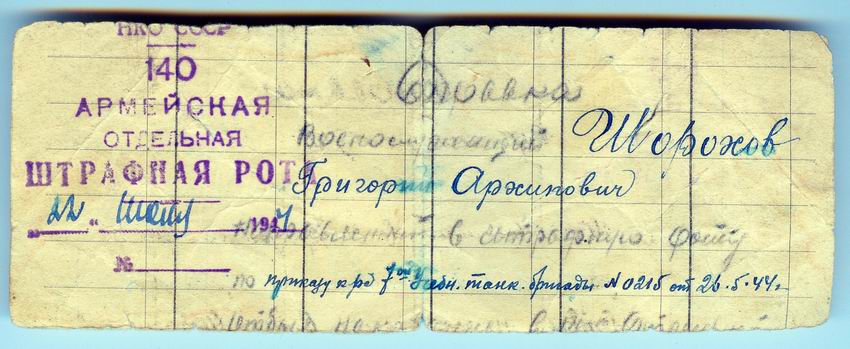 НКО СССР
140
АРМЕЙСКАЯ
ОТДЕЛЬНАЯ
ШТРАФНАЯ РОТА
"22"
194
№
Справка
Военослужащий
Шорохов
Григорий Архипович
направленный в штрафную роту
по приказу к-ра гвард. танк. бригады N 0215 от 26.5.44г
отбыл наказание в